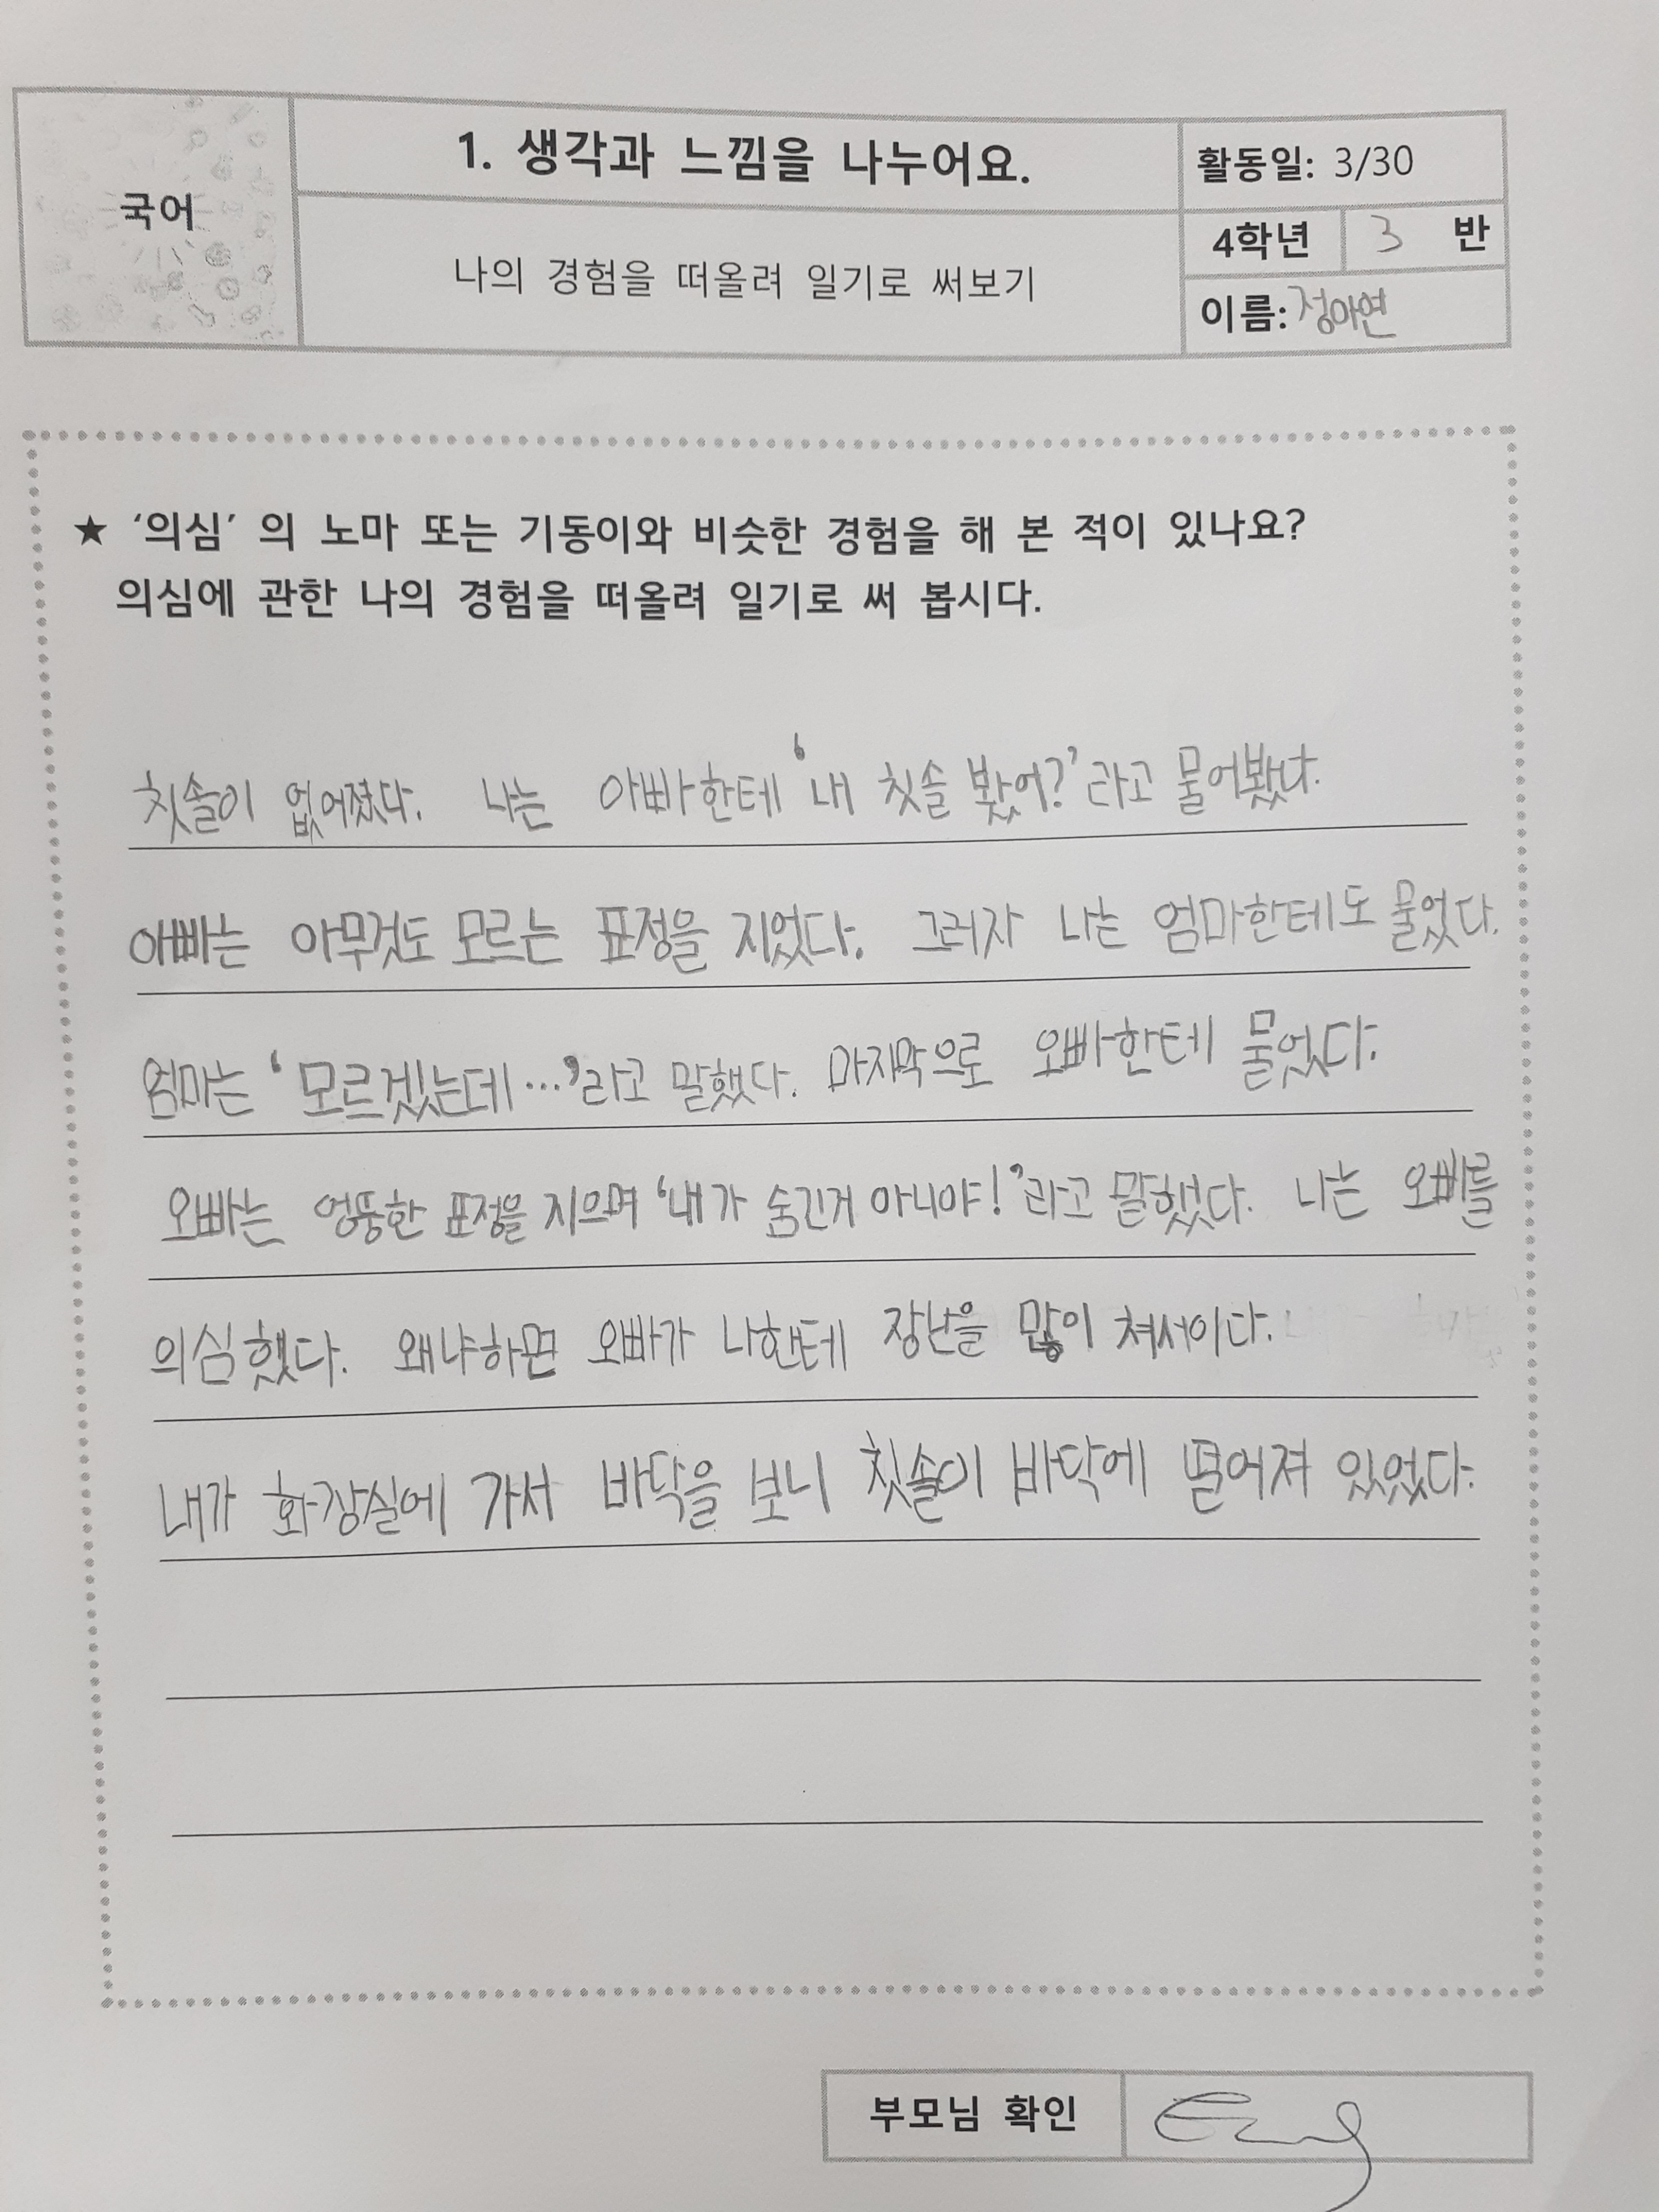 국어
1. 생각과 느낌을 나누어요.
나의 경험을 떠올려 일기로 써보기
활동일: 3/30
4학년 3 반
이름: 정아연
★ ‘의심’ 의 노마 또는 기동이와 비슷한 경험을 해 본 적이 있나요?
의심에 관한 나의 경험을 떠올려 일기로 써 봅시다.
칫솔이 없어졌다. 나는 아빠한테 ‘내 칫솔 봤어?’라고 물어봤다.
아빠는 아무것도 모르는 표정을 지었다. 그러자 나는 엄마한테도 물었다.
엄마는 ‘모르겠는데…’라고 말했다. 마지막으로 오빠한테 물었다.
오빠는 엉뚱한 표정을 지으며 ‘내가 숨긴거 아니야!’라고 말했다. 나는 오빠를
의심했다. 왜냐하면 오빠가 나한테 장난을 많이 쳐서이다.
내가 화장실에 가서 바닥을 보니 칫솔이 바닥에 떨어져 있었다.
부모님 확인